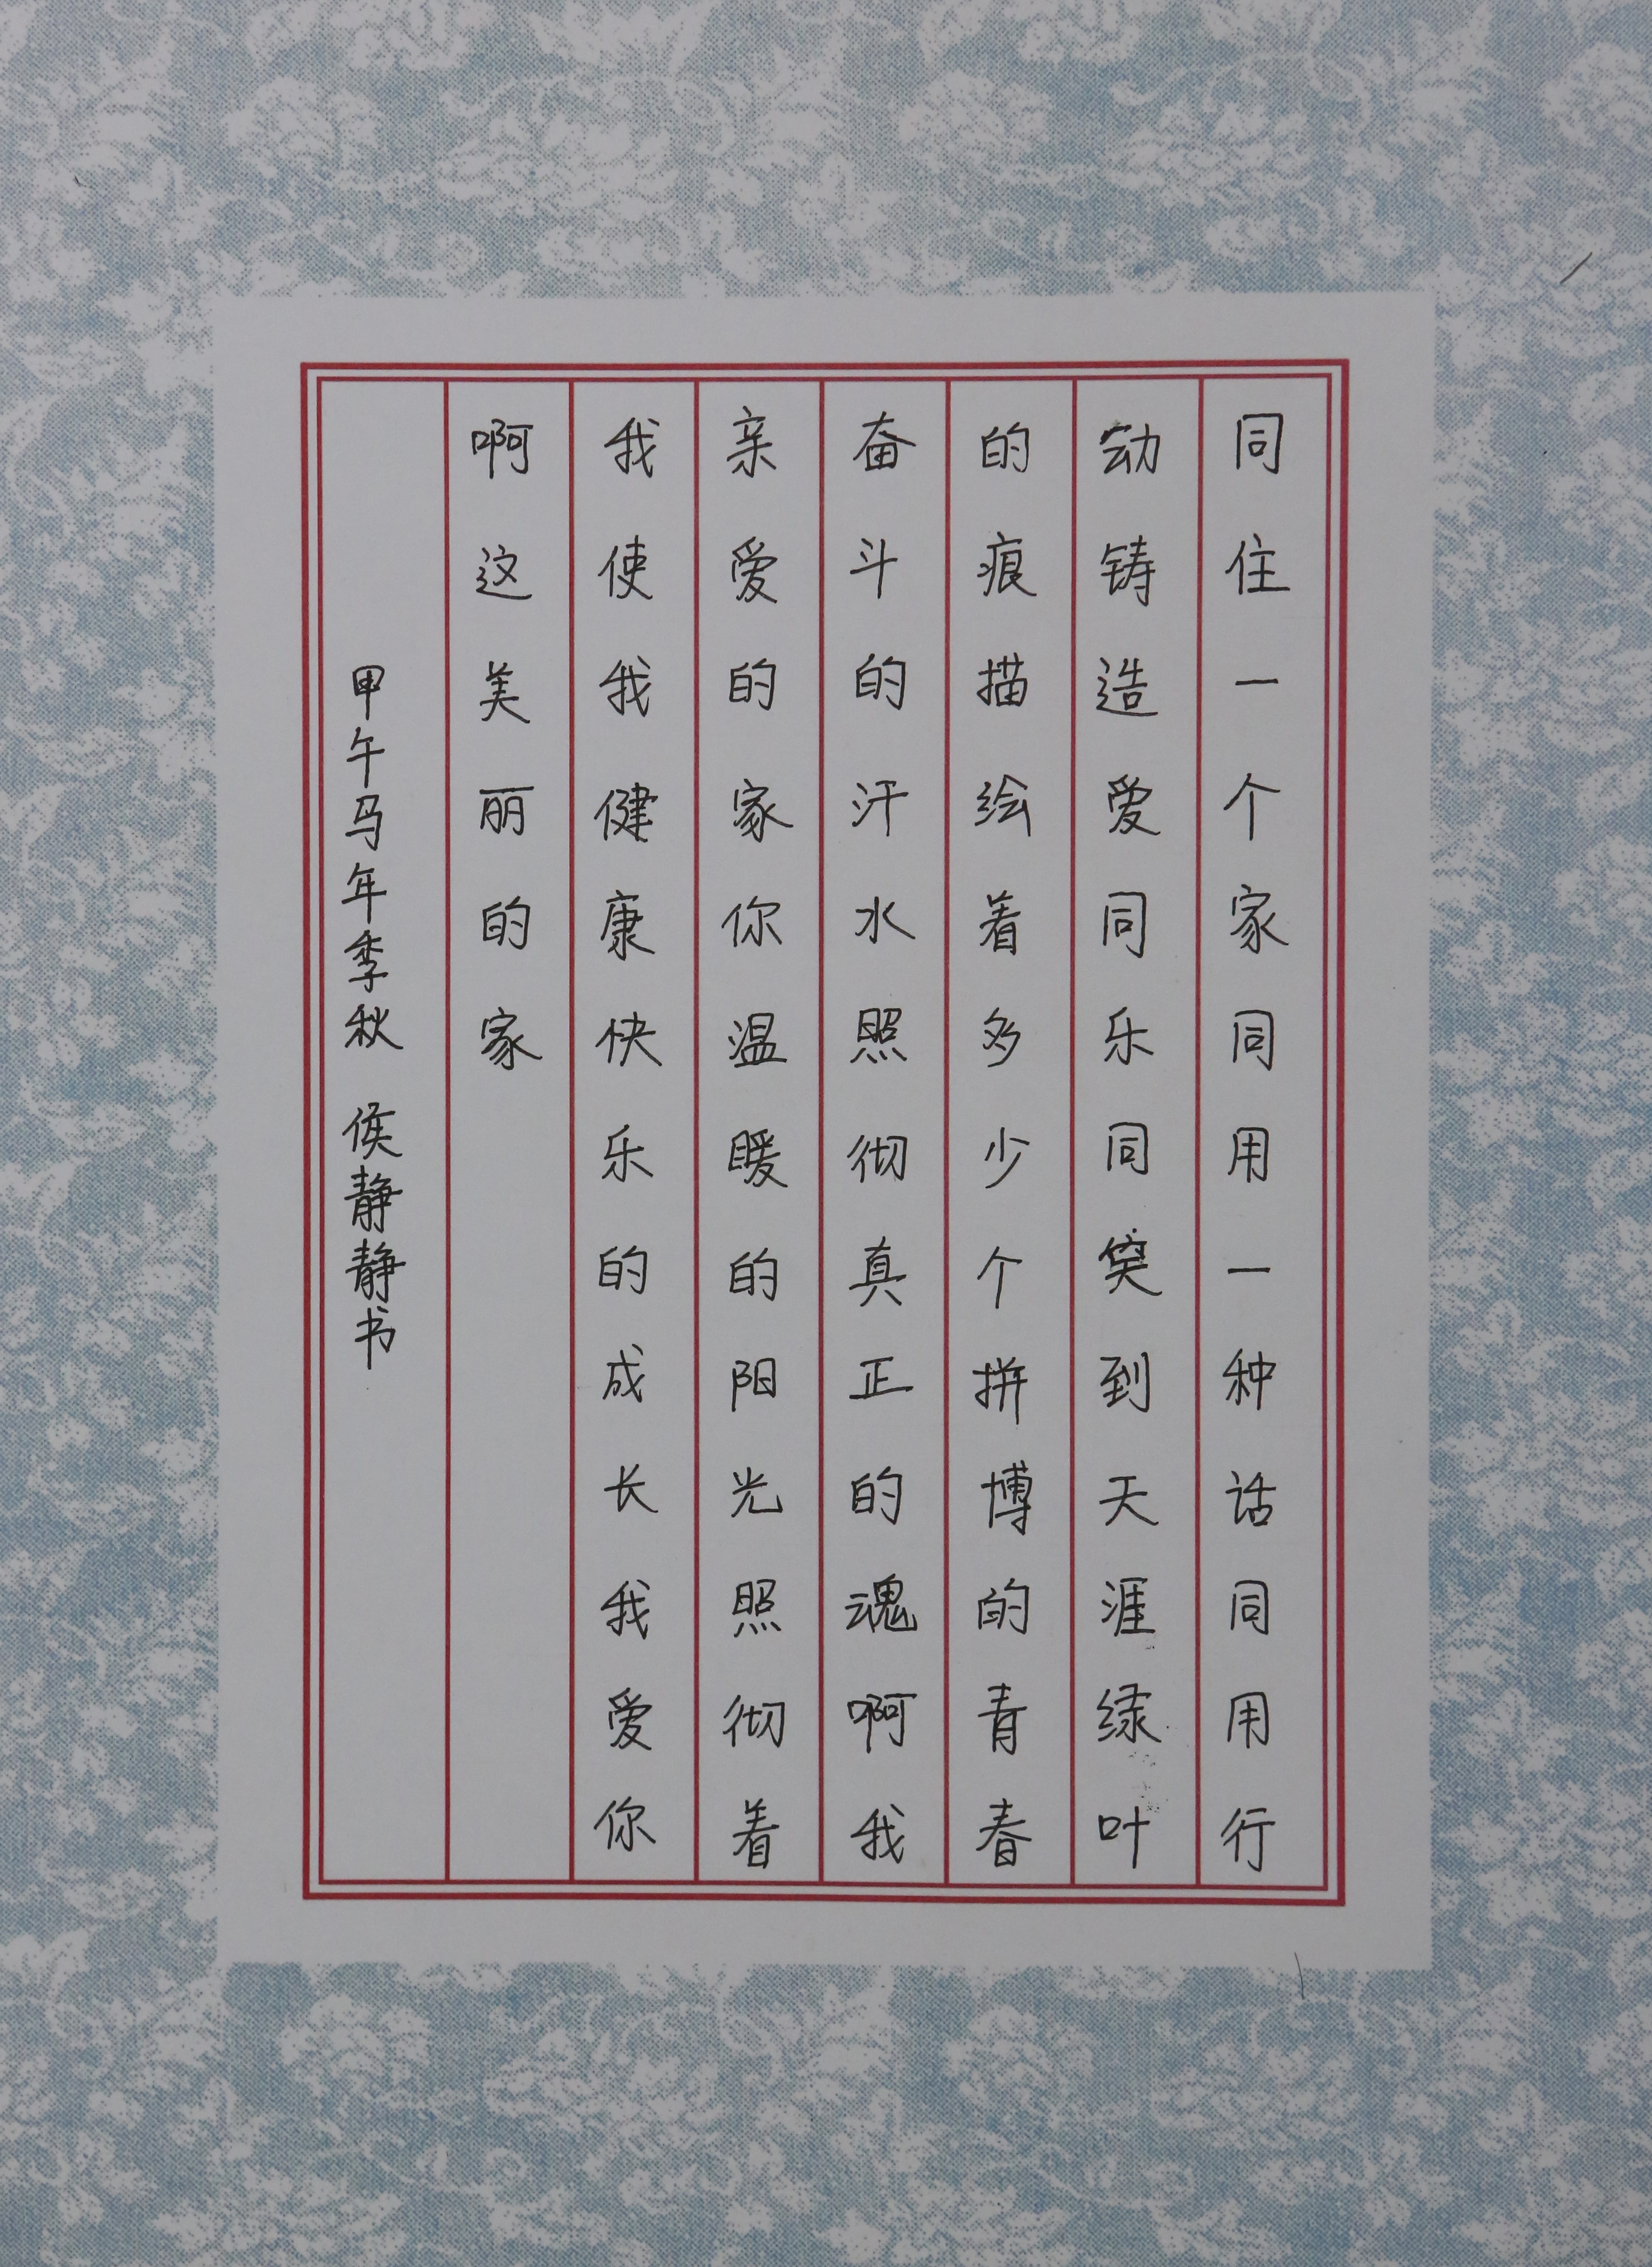 同住一个家同用一种话同用行
动铸造爱同乐同笑到天涯绿叶
的痕描绘着多少个拼博的青春
奋斗的汗水照彻真正的魂啊我
亲爱的家你温暖的阳光照彻着
我使我健康快乐的成长我爱你
啊这美丽的家
甲午马年季秋 侯静静书